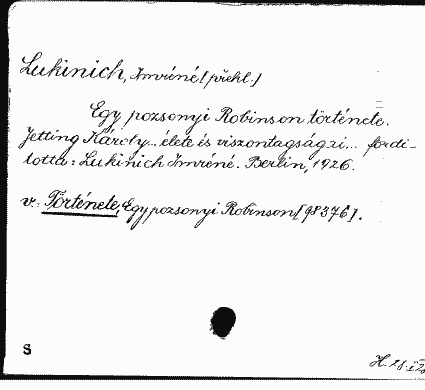 Lukinich, Imréné [překl.]
Egy pozsonyi Robinson története.
Jetting Károly... élete és viszontagságai... fordi-
totta: Lukinich Imréné. Berlin, 1926.
v.: Története, Egy pozsonyi Robinson [98376].
S